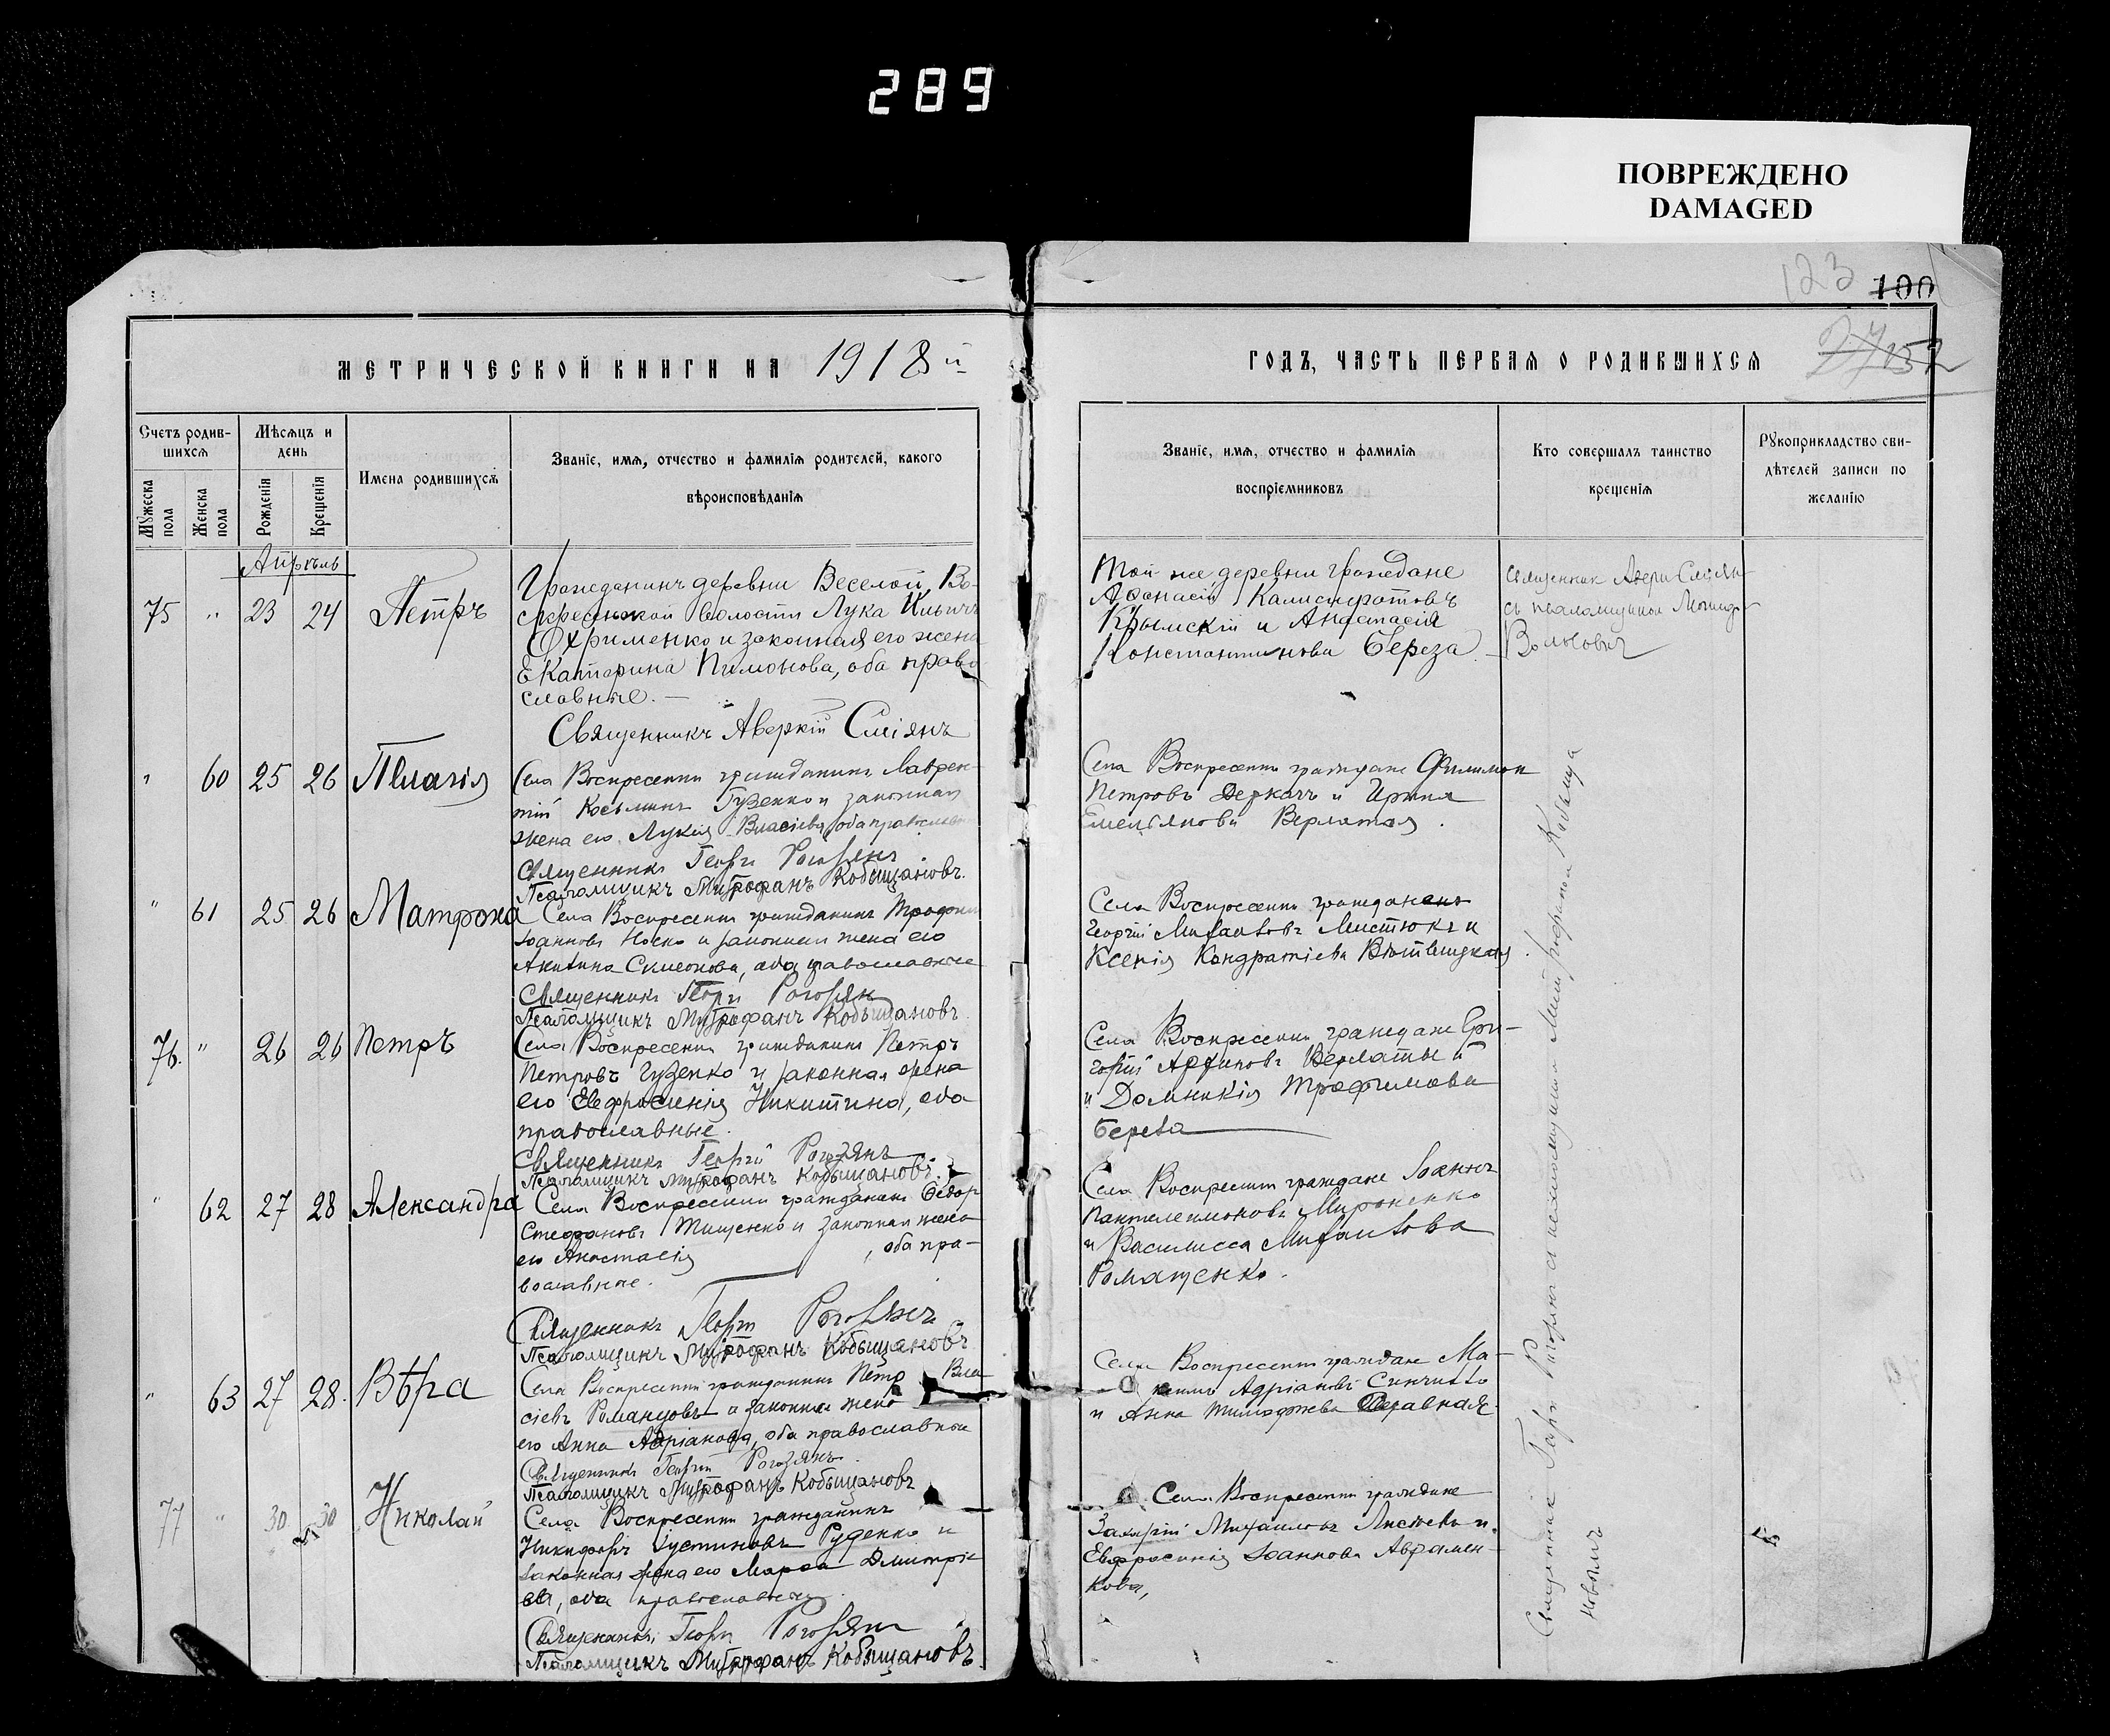 289
ПОВРЕЖДЕНО
DAMAGED
123 100
МЕТРИЧЕСКОЙ КНИГИ НА 1918 й
ГОДЪ, ЧАСТЬ ПЕРВАЯ О РОДИВШИХСЯ
152
Счетъ родив-
шихся
Мѣсяцъ и
день
Мужеска
пола
Женска
пола
Рожденія
Крещенія
Имена родившихся
Званіе, имя, отчество и фамилія родителей, какого
вѣроисповѣданія
Званіе, имя, отчество и фамилія
воспріемниковъ
Кто совершалъ таинство
крещенія
Рукоприкладство сви-
дѣтелей записи по
желанію
Апрѣль
75 " 23 24 Петръ
Гражданинъ деревни Веселой, Во-
скресенской волости Лука Ильичъ
Охрименко и законная его жена
Екатерина Пимонова, оба право
славные. —
Священникъ Аверкій Сміянъ
Той же деревни граждане
Афанасій Калистратовъ
Крымскій и Анастасія
Константинова Береза.
Священник
съ псаломщиком
" 60 25 26 Пелагія
Села Воскресенки гражданинъ Лаврен-
тій Косьминъ Гузенко и законная
жена его Лукія Власіева, оба православн
Священникъ Георгій Рогозянъ
Псаломщикъ Митрофанъ Кобыщановъ.
Села Воскресенки граждане Филимон
Петровъ Деркачъ и Ирина
Емельянова Верлатая.
" 61 25 26 Матрона
Села Воскресенки гражданинъ Трофим
Іоанновъ Носко и законная жена его
Акилина Симеонова, оба православные
Священникъ Георгій Рогозян
Псаломщикъ Митрофанъ Кобыщановъ.
Села Воскресенки граждане
Георгій Михаиловъ Мистюкъ и
Ксенія Кондратіева
76. " 26 26 Петръ
Села Воскресенки гражданинъ Петръ
Петровъ Гузенко и законная жена
его Евфросинія Никитина, оба
православные.
Священникъ Георгій Рогозянъ
Псаломщикъ Митрофанъ Кобыщановъ.
Села Воскресенки граждане Гри-
горій Архиповъ Верлатый
и Домникія Трофимова
Береза
" 62 27 28 Александра
Села Воскресенки гражданинъ Ѳедор
Стефановъ Тищенко и законная жена
его Анастасія , оба пра-
вославные.
Священникъ Георгій Рогозянъ
Псаломщикъ Митрофанъ Кобыщановъ
Села Воскресенки граждане Іоаннъ
Пантелеимоновъ Мироненко
и Василисса Михаилова
Ромащенко.
" 63 27 28. Вѣра
Села Воскресенки гражданинъ Петр Вла
сіевъ Романцовъ и законная жена
его Анна Адріанова, оба православные
Священникъ Георгій Рогозянъ.
Псаломщикъ Митрофанъ Кобыщановъ
Села Воскресенки граждане Ма-
ксимъ Адріановъ
и Анна Тимофѣева
77 " 30 30 Николай
Села Воскресенки гражданинъ
Никифоръ Іустиновъ Руденко и
законная жена его Марѳа Дмитріе
ва, оба православные.
Священникъ Георгій Рогозянъ
Псаломщикъ Митрофанъ Кобыщановъ
Села Воскресенки граждане
Захарій Михаиловъ и
Евфросинія Іоаннова Авramен-
кова,
Священникъ Георгій Рогозянъ съ псаломщикомъ Митрофаном Кобыща
новымъ